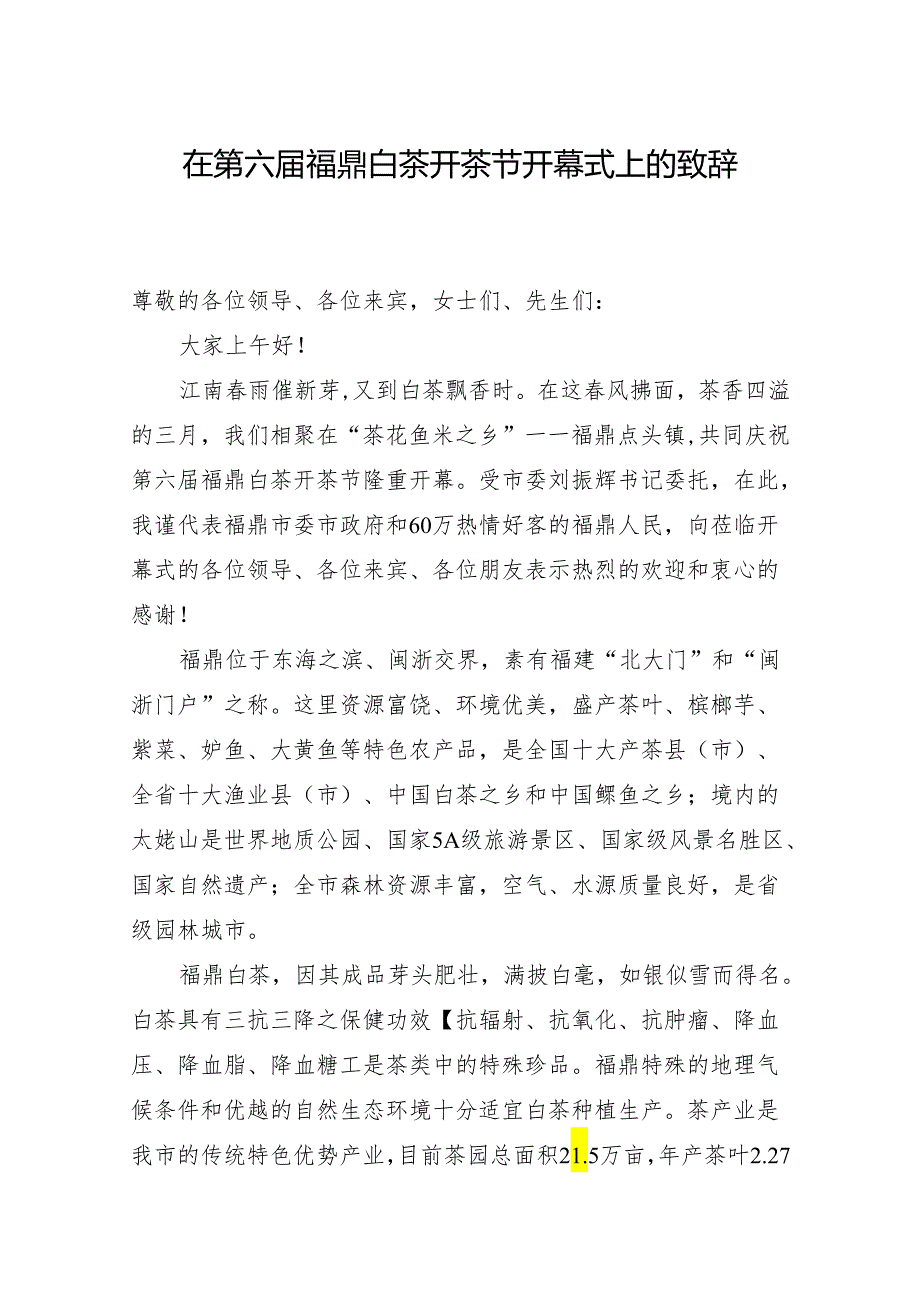 在第六届福鼎白茶开茶节开幕式上的致辞
尊敬的各位领导、各位来宾，女士们、先生们：
大家上午好！
江南春雨催新芽,又到白茶飘香时。在这春风拂面，茶香四溢
的三月，我们相聚在“茶花鱼米之乡”一一福鼎点头镇,共同庆祝
第六届福鼎白茶开茶节隆重开幕。受市委刘振辉书记委托，在此，
我谨代表福鼎市委市政府和60万热情好客的福鼎人民，向莅临开
幕式的各位领导、各位来宾、各位朋友表示热烈的欢迎和衷心的
感谢！
福鼎位于东海之滨、闽浙交界，素有福建“北大门”和“闽
浙门户”之称。这里资源富饶、环境优美，盛产茶叶、槟榔芋、
紫菜、妒鱼、大黄鱼等特色农产品，是全国十大产茶县（市）、
全省十大渔业县（市）、中国白茶之乡和中国鳏鱼之乡；境内的
太姥山是世界地质公园、国家5A级旅游景区、国家级风景名胜区、
国家自然遗产；全市森林资源丰富，空气、水源质量良好，是省
级园林城市。
福鼎白茶，因其成品芽头肥壮，满披白毫，如银似雪而得名。
白茶具有三抗三降之保健功效【抗辐射、抗氧化、抗肿瘤、降血
压、降血脂、降血糖工是茶类中的特殊珍品。福鼎特殊的地理气
候条件和优越的自然生态环境十分适宜白茶种植生产。茶产业是
我市的传统特色优势产业,目前茶园总面积21.5万亩,年产茶叶2.27